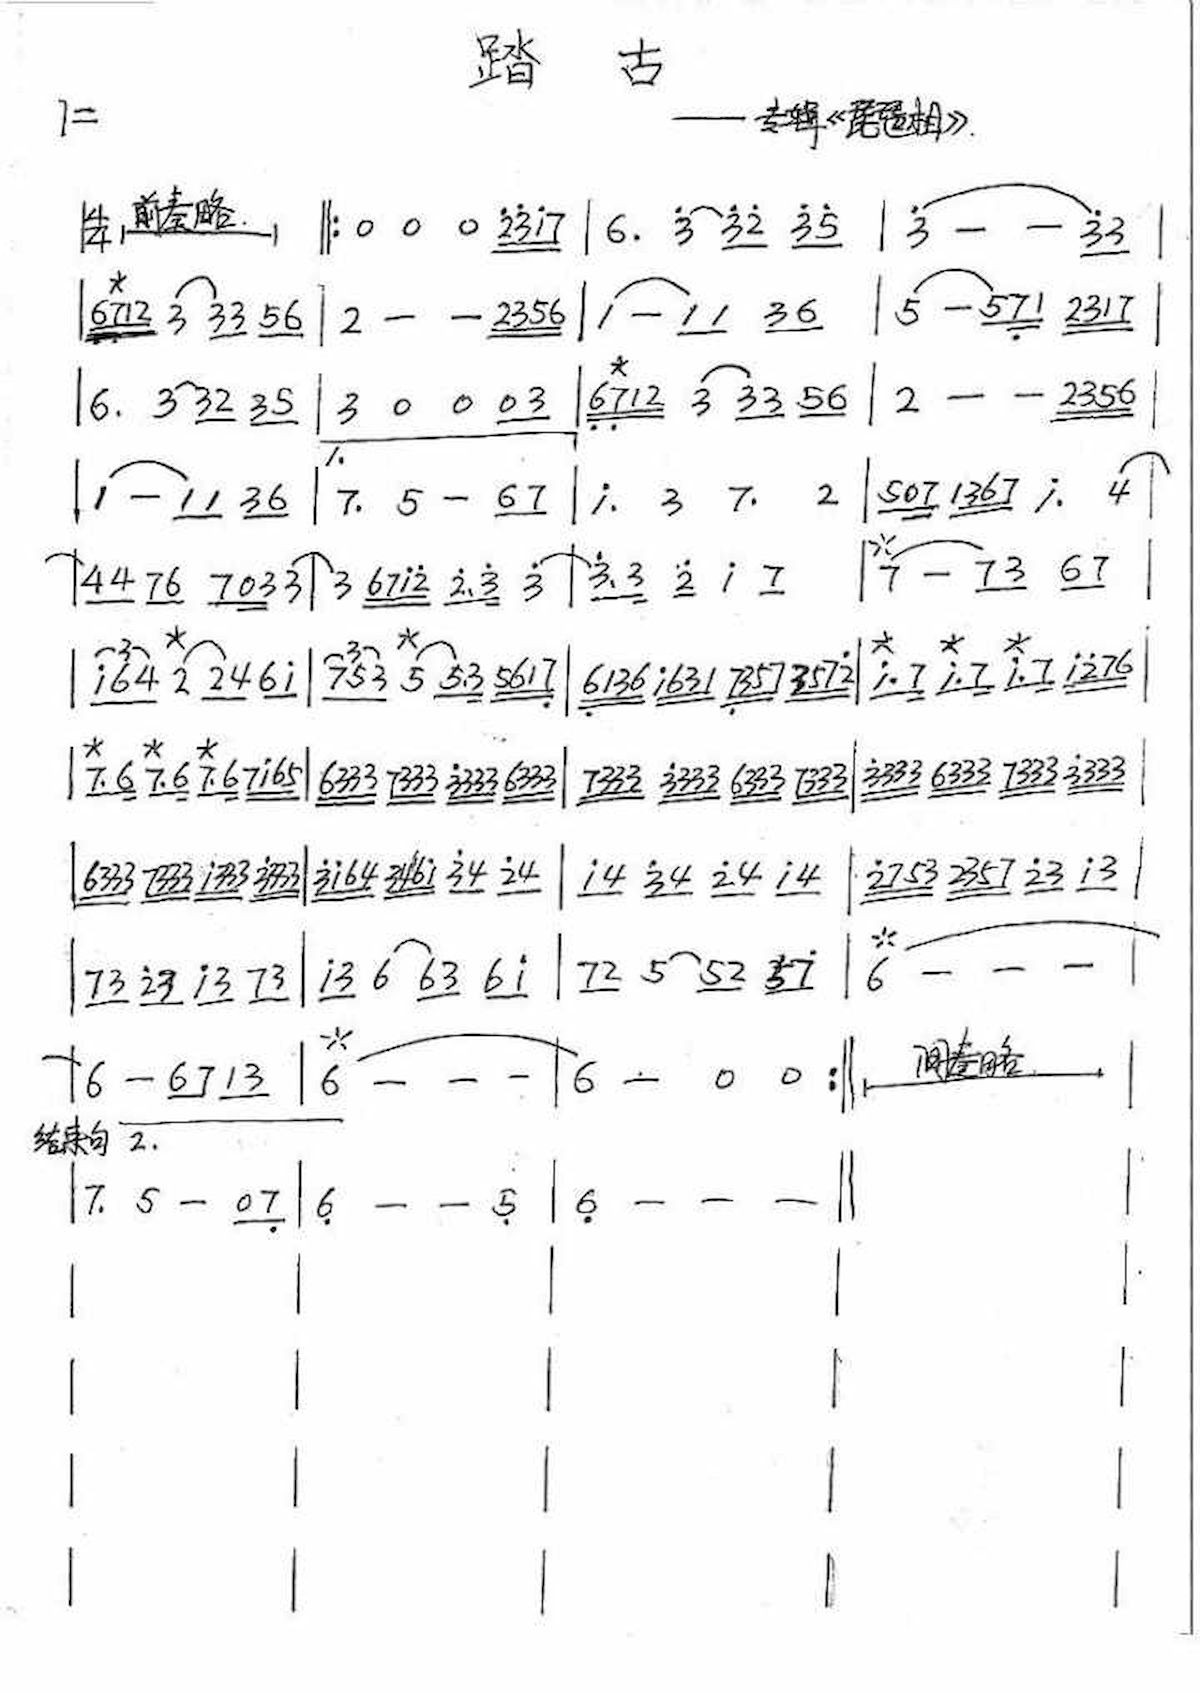 踏 古
1=
——专辑《琵琶相》
4/4 前奏略. ‖: 0 0 0 2̇3̇1̇7 | 6. 3̇ 3̇2̇ 3̇5̇ | 3̇ — — 3̇3 |
| 6712 3 33 56 | 2 — — 2356 | 1 — 11 36 | 5 — 571 2317 |
| 6. 3 32 35 | 3 0 0 03 | 6712 3 33 56 | 2 — — 2356 |
1.
| 1 — 11 36 | 7. 5 — 67 | 1̇. 3 7. 2 | 507 1367 1̇. 4 |
| 44 76 7033 | 3 671̇2̇ 2̇.3̇ 3̇ | 3̇.3 2̇ 1̇ 7 | 7 — 73 67 |
| 1̇64 2 2461̇ | 753 5 5.3 5617 | 6136 1̇631 7357 3572̇ | 1̇.7 1̇.7 1̇.7 1̇2̇76 |
| 7.6 7.6 7.6 71̇65 | 6333 7333 3̇333 6333 | 7333 3̇333 6333 7333 | 3̇333 6333 7333 3̇333 |
| 6333 7333 1̇333 3̇333 | 3̇1̇64 3461̇ 3̇4 2̇4 | 1̇4 3̇4 2̇4 1̇4 | 2̇753 2357 2̇3 1̇3 |
| 73 2̇3 1̇3 73 | 1̇3 6 63 61̇ | 72 5 52 57̇ | 6 — — — |
| 6 — 6713 | 6 — — — | 6 — 0 0 :‖ 间奏略. |
结束句 2.
| 7. 5 — 07̣ | 6̣ — — 5̣ | 6̣ — — — ‖